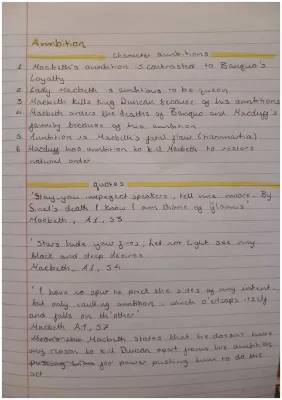 Ambition
Character ambitions
1 Macbeth's ambition is contrasted to Banquo's
Loyalty
2 Lady Macbeth is ambitious to be queen
3 Macbeth kills King Duncan because of his ambitions
4 Macbeth orders the deaths of Banquo and Macduff's
family because of his ambition
5 Ambition is Macbeth's fatal flaw (hamartia)
6 Macduff has ambition to kill Macbeth to restore
natural order
quotes
'Stay you imperfect speakers, tell me more. By
Sinel's death I know I am thane of Glamis'
Macbeth, A1, S3
'Stars hide your fires, Let not light see my
black and deep desires
Macbeth, A1, S4
'I have no spur to prick the sides of my intent
but only vaulting ambition, which o'erleaps itself
and falls on th'other'
Macbeth A1, S7
Macbeth states that he doesn't have
any reason to kill Duncan apart from his ambition
for power pushing him to do the
act